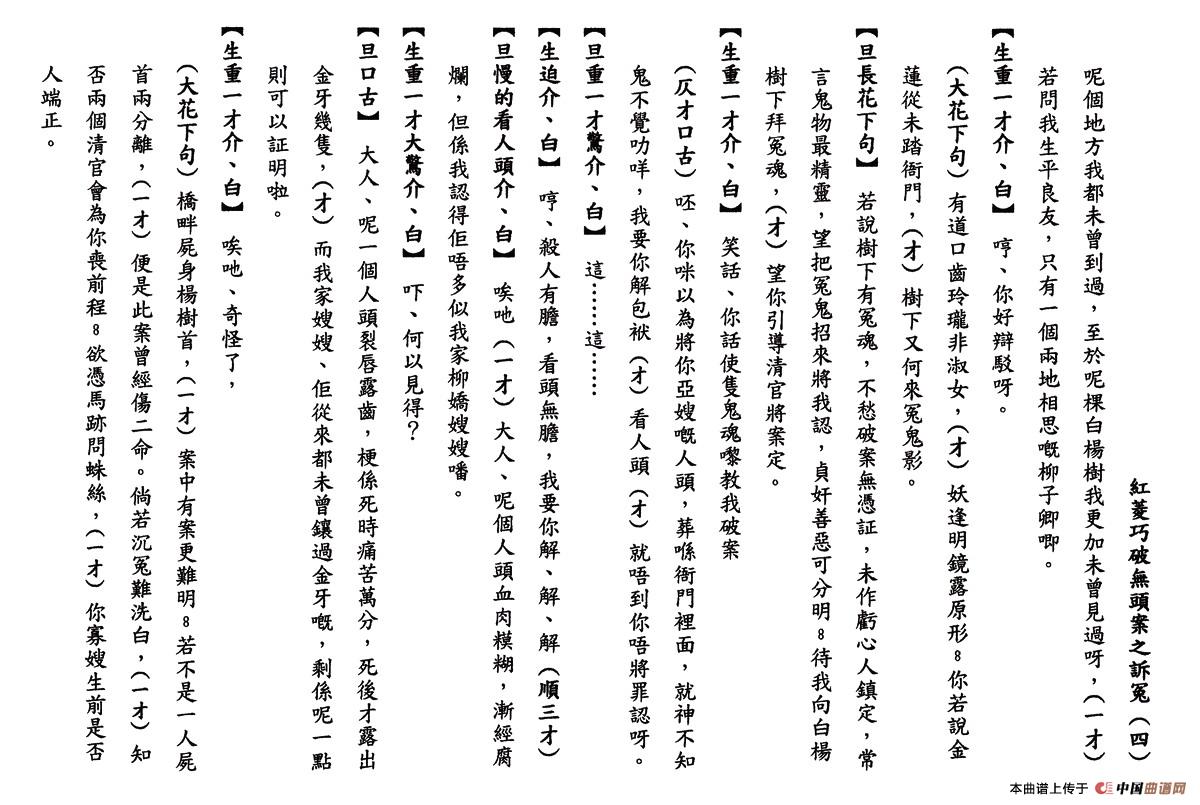 紅菱巧破無頭案之訴冤（四）
呢個地方我都未曾到過，至於呢棵白楊樹我更加未曾見過呀，（一才）
若問我生平良友，只有一個兩地相思嘅柳子卿唧。
【生重一才介、白】　哼、你好辯駁呀。
（大花下句）有道口齒玲瓏非淑女，（才）妖逢明鏡露原形。你若說金
蓮從未踏衙門，（才）樹下又何來冤鬼影。
【旦長花下句】　若說樹下有冤魂，不愁破案無憑証，未作虧心人鎮定，常
言鬼物最精靈，望把冤鬼招來將我認，貞奸善惡可分明。待我向白楊
樹下拜冤魂，（才）望你引導清官將案定。
【生重一才介、白】　笑話、你話使隻鬼魂嚟教我破案
（仄才口古）呸、你咪以為將你亞嫂嘅人頭，葬喺衙門裡面，就神不知
鬼不覺叻咩，我要你解包袱（才）看人頭（才）就唔到你唔將罪認呀。
【旦重一才驚介、白】　這……這……
【生迫介、白】　哼、殺人有膽，看頭無膽，我要你解、解、解（順三才）
【旦慢的看人頭介、白】　唉吔（一才）大人、呢個人頭血肉糢糊，漸經腐
爛，但係我認得佢唔多似我家柳嬌嫂嫂噃。
【生重一才大驚介、白】　吓、何以見得？
【旦口古】　大人、呢一個人頭裂唇露齒，梗係死時痛苦萬分，死後才露出
金牙幾隻，（才）而我家嫂嫂、佢從來都未曾鑲過金牙嘅，剩係呢一點
則可以証明啦。
【生重一才介、白】　唉吔、奇怪了，
（大花下句）橋畔屍身楊樹首，（一才）案中有案更難明。若不是一人屍
首兩分離，（一才）便是此案曾經傷二命。倘若沉冤難洗白，（一才）知
否兩個清官會為你喪前程。欲憑馬跡問蛛絲，（一才）你寡嫂生前是否
人端正。
本曲谱上传于 中国曲谱网